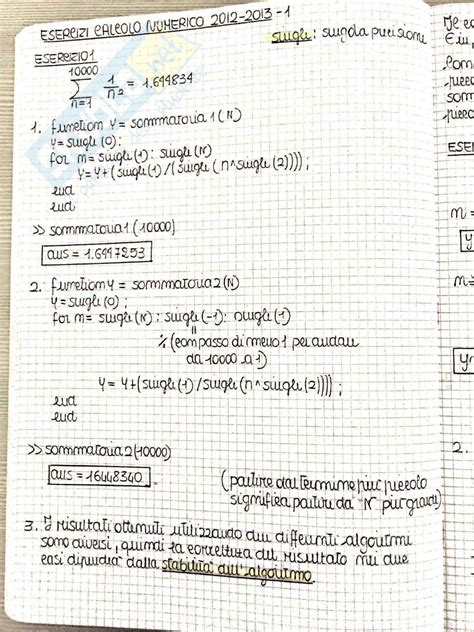 ESERCIZI CALCOLO NUMERICO 2012-2013-1
single: singola precisione
ESERCIZIO 1
10000
∑ 1/n² = 1.644834
n=1
1. function y = sommatoria1(N)
y=single(0);
for n=single(1):single(N)
y=y+(single(1)/(single(n^single(2))));
end
end
>> sommatoria1(10000)
ans = 1.6447253
2. function y = sommatoria2(N)
y=single(0);
for n=single(N):single(-1):single(1)
% (con passo di meno 1 per andare
da 10000 a 1)
y=y+(single(1)/single(n^single(2))));
end
end
>> sommatoria2(10000)
ans = 16448340
(partire dal termine più piccolo
significa partire da N più grandi)
3. I risultati ottenuti utilizzando due differenti algoritmi
sono diversi, quindi la correttezza del risultato nei due
casi dipende dalla stabilità dell'algoritmo.
2.